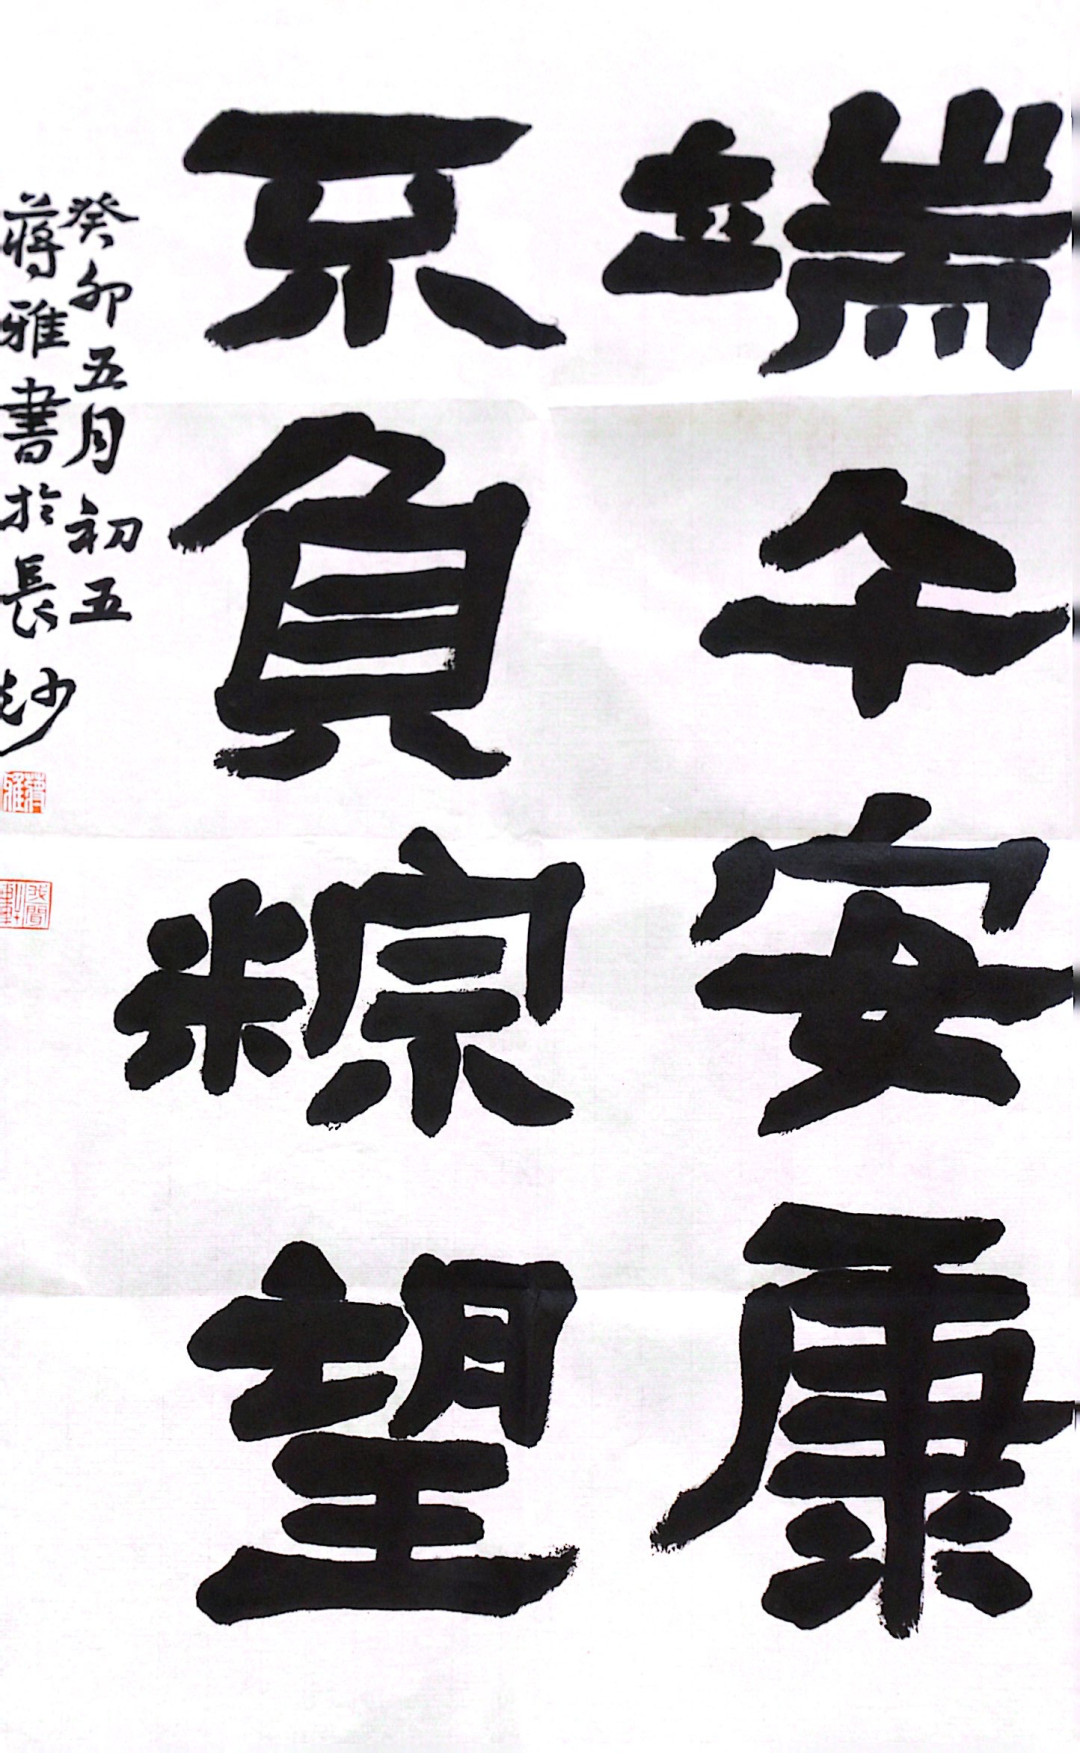 端午安康
不負粽望
癸卯五月初五
蔣雅書於長沙
蔣雅